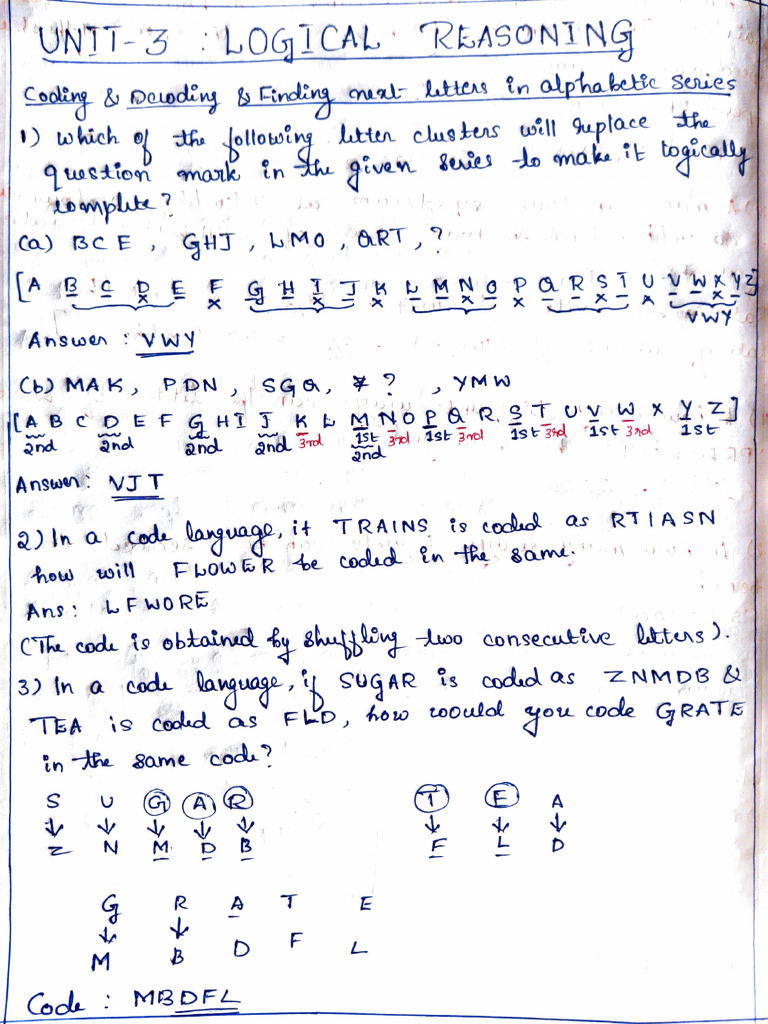 UNIT-3 : LOGICAL REASONING
Coding & Decoding & Finding next letters in alphabetic series
1) Which of the following letter clusters will replace the
question mark in the given series to make it logically
complete?
(a) BCE, GHJ, LMO, QRT, ?
[A B C D E F G H I J K L M N O P Q R S T U V W X Y Z]
x x x x x x x x x x
VWY
Answer : VWY
(b) MAK, PDN, SGQ, ? , YMW
[A B C D E F G H I J K L M N O P Q R S T U V W X Y Z]
2nd 2nd 2nd 2nd 3rd 1st 3rd 1st 3rd 1st 3rd 1st 3rd 1st
2nd
Answer: VJT
2) In a code language, if TRAINS is coded as RTIASN
how will FLOWER be coded in the same.
Ans: LFWORE
(The code is obtained by shuffling two consecutive letters).
3) In a code language, if SUGAR is coded as ZNMDB &
TEA is coded as FLD, how woould you code GRATE
in the same code?
S U G A R T E A
↓ ↓ ↓ ↓ ↓ ↓ ↓ ↓
Z N M D B F L D
G R A T E
↓ ↓
M B D F L
Code : MBDFL